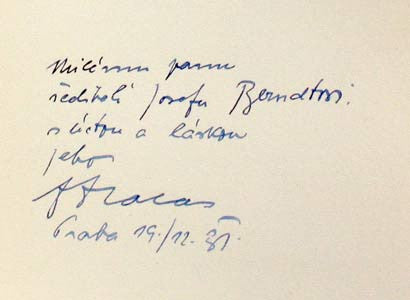 Milému panu
řediteli Josefu Berndtovi.
s úctou a láskou
jeho
Praha 19./12.